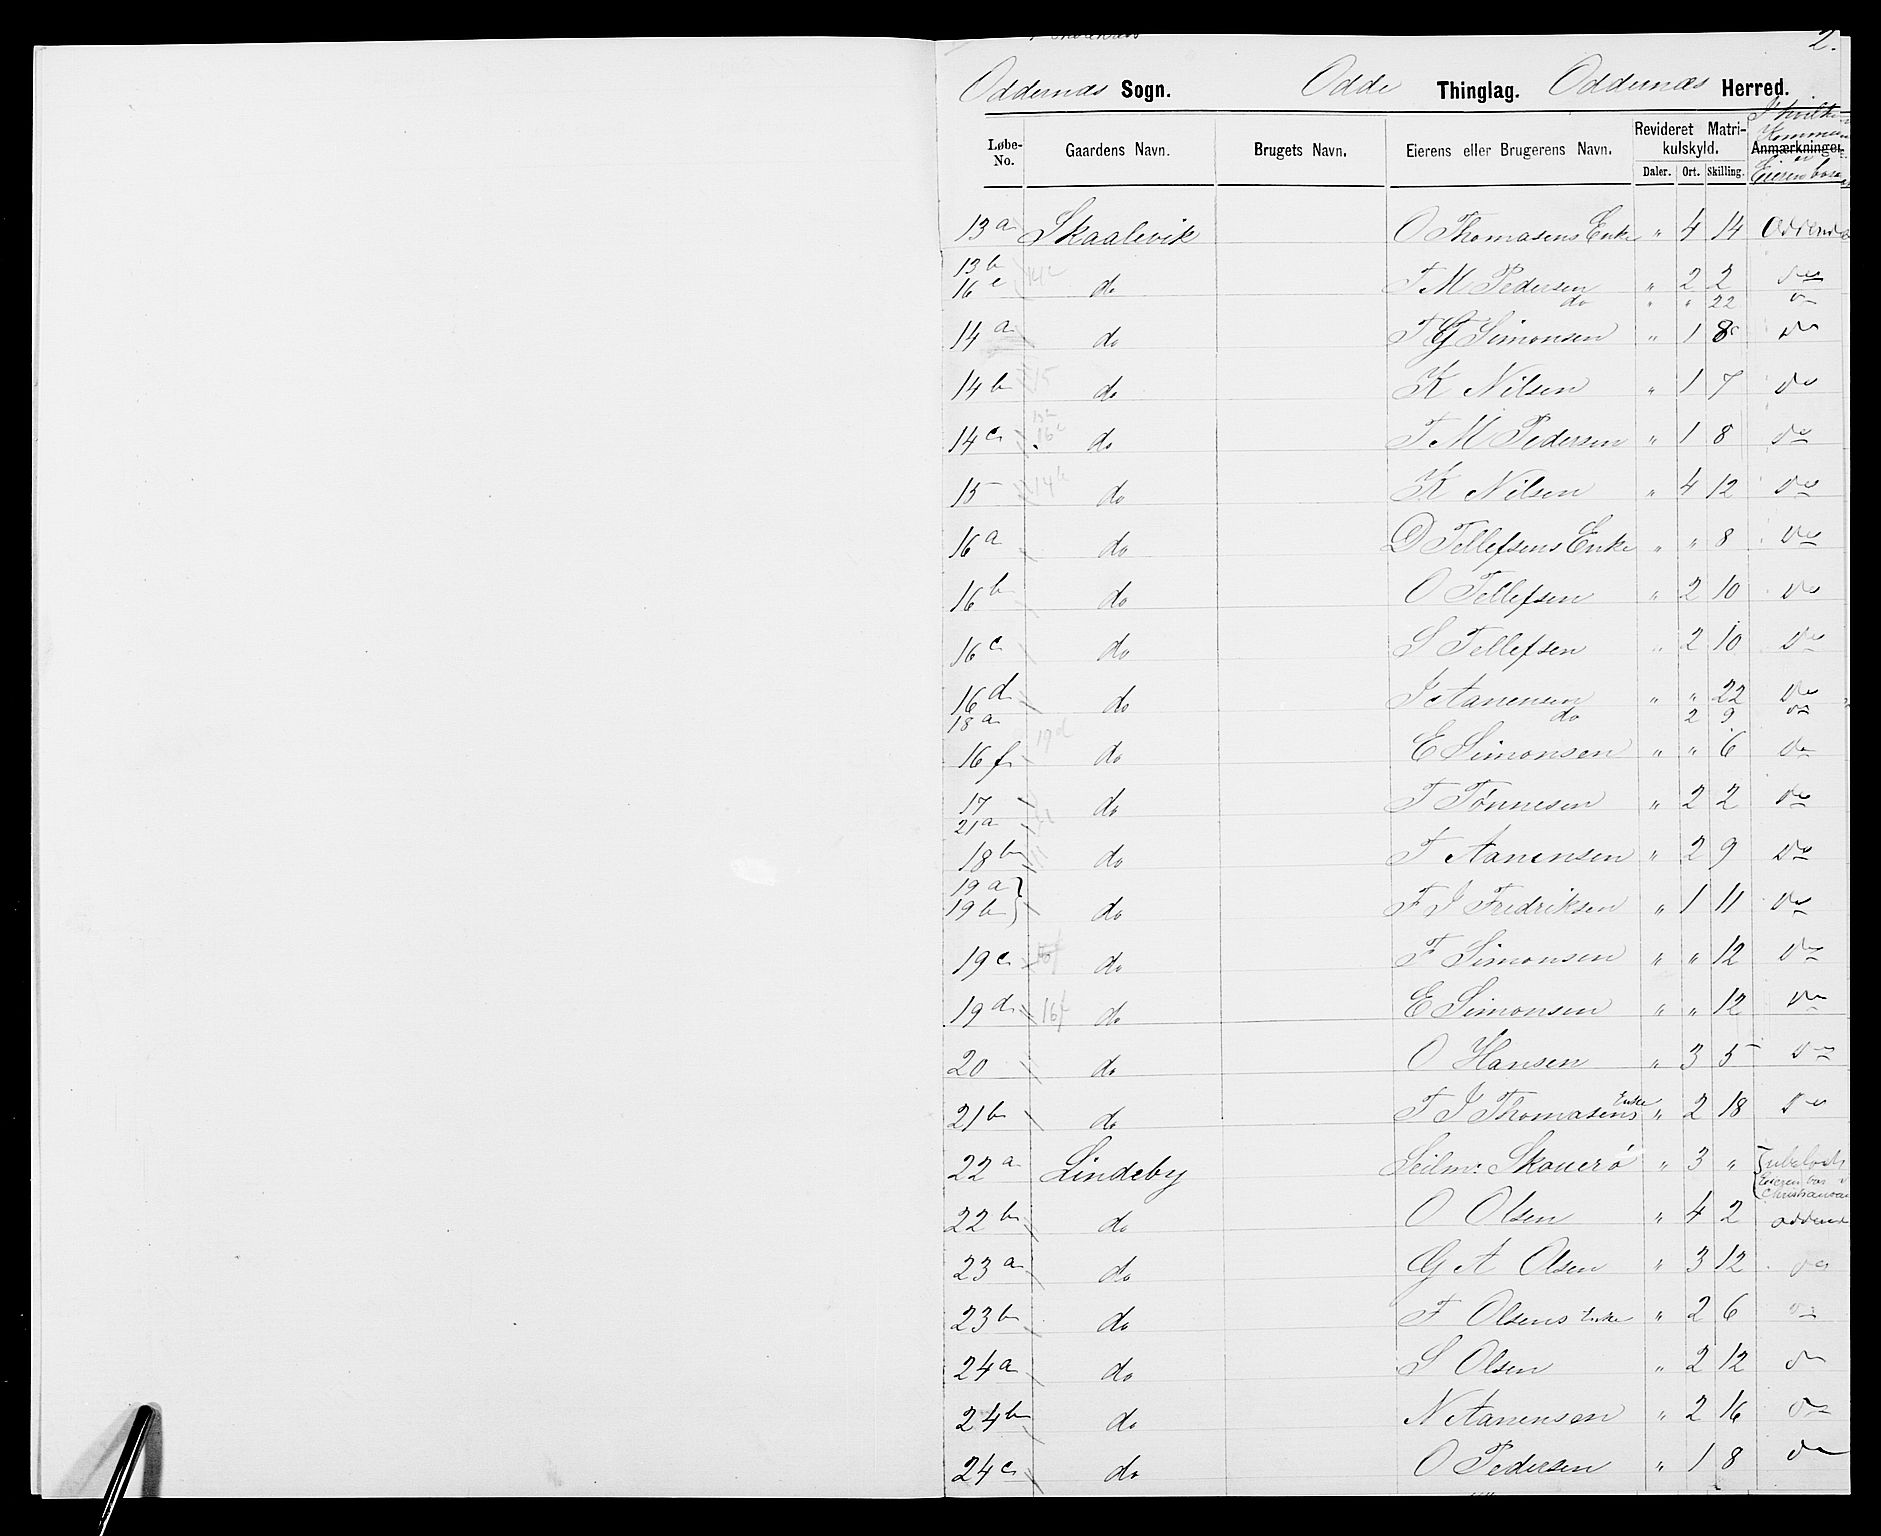 2.
Oddernæs Sogn. Odde Thinglag. Oddernæs Herred.
Løbe-No. Gaardens Navn. Brugets Navn. Eierens eller Brugerens Navn. Revideret Matrikulskyld. Daler. Ort. Skilling. Anmærkninger.
13a Skaalevik O Thomasens Enke " 4 14
13b
16e do T M Pedersen " 2 2 do
do " " 22 do
14a do T G Simonsen " 1 8 do
14b do K Nilsen " 1 7 do
14c do T M Pedersen " 1 8 do
15 14b do K Nilsen " 4 12 do
16a do D Tellefsens Enke " " 8 do
16b do O Tellefsen " 2 10 do
16c do S Tellefsen " 2 10 do
16d do J Aanensen " " 22 do
18a do 2 9 do
16f 19d do E Simonsen " " 6 do
17 do T Tønnesen " 2 2 do
21a
18b do T Aanensen " 2 9 do
19a
19b do F J Fredriksen " 1 11 do
19c do F Simonsen " " 12 do
19d 16f do E Simonsen " " 12 do
20 do O Hansen " 3 5 do
21b do T J Thomasens Enke " 2 18 do
22a Lindeby Seilm: Skauerø " 3 "
Eieren bor i
22b do O Olsen " 4 2
23a do G A Olsen " 3 12 do
23b do F Olsens Enke " 2 6 do
24a do S Olsen " 2 12 do
24b do N Aanensen " 2 16 do
24c do O Pedersen " 1 8 do